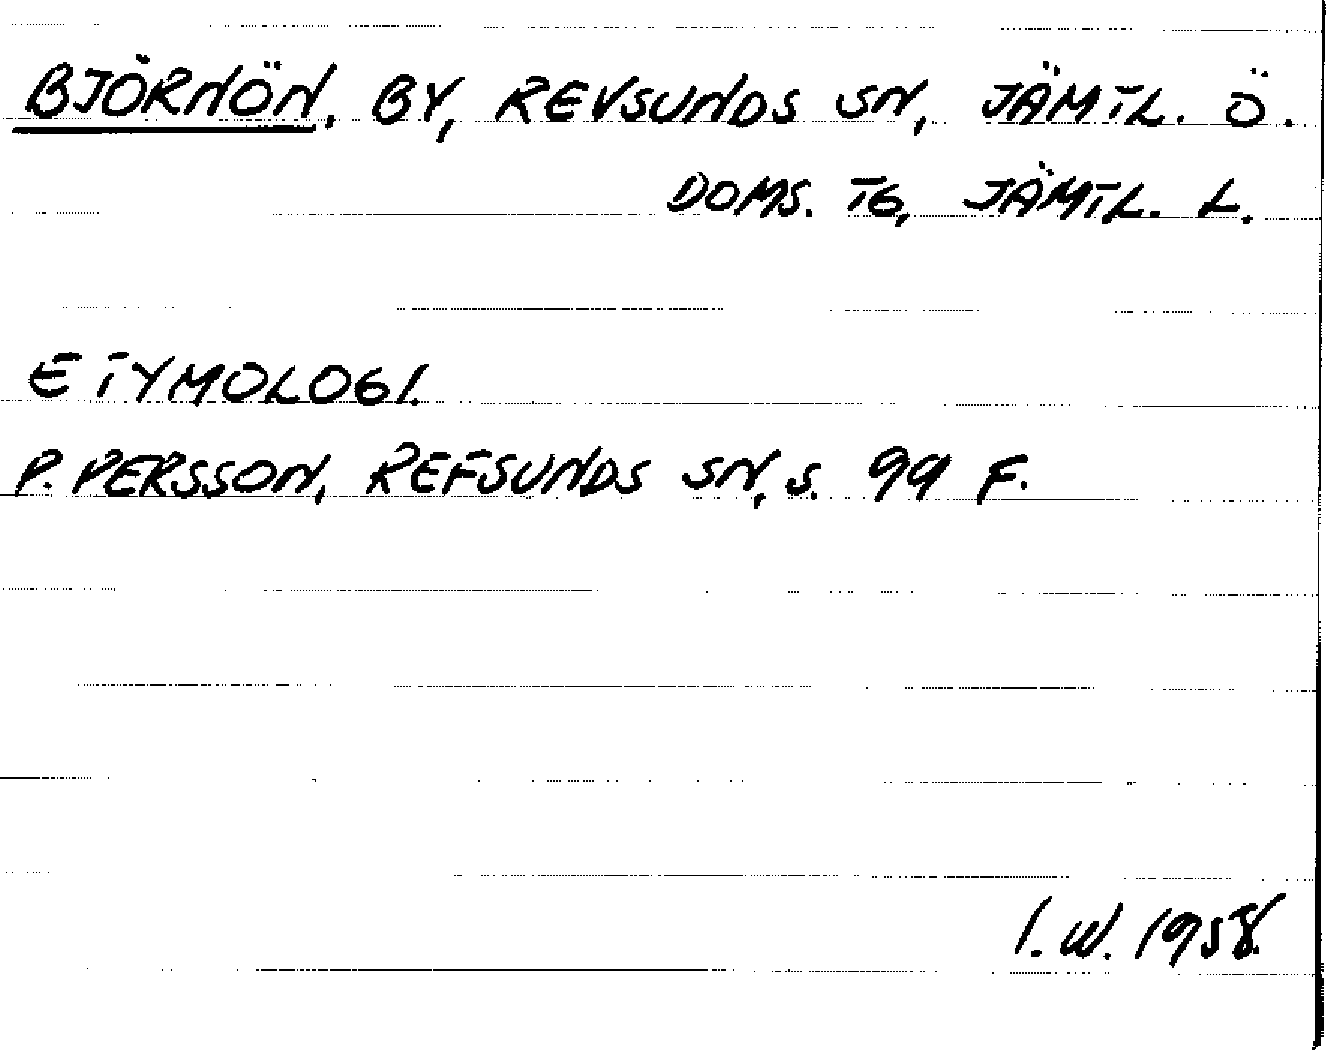 BJÖRNÖN, BY, REVSUNDS SN, JÄMTL. Ö.
DOMS. TG, JÄMTL. L.
ETYMOLOGI.
P. PERSSON, REFSUNDS SN, S. 99 F.
I.W. 1958.